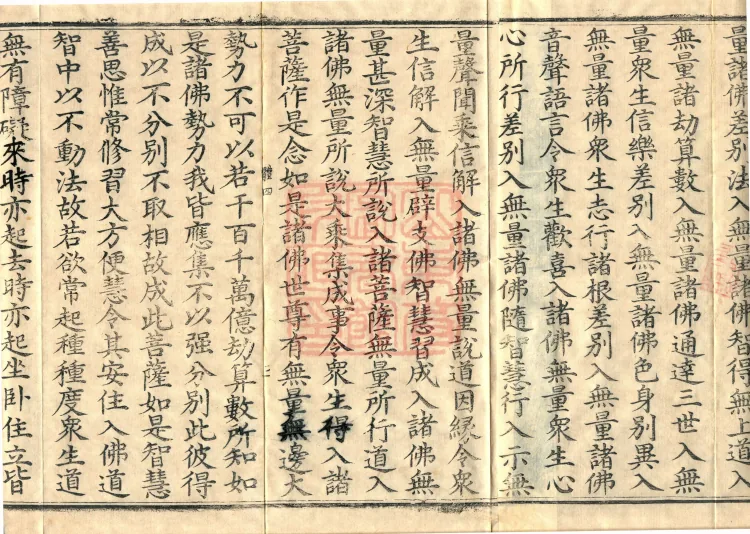 量諸佛差別法入無量諸佛智得無上道入
無量諸劫算數入無量諸佛通達三世入無
量衆生信樂差別入無量諸佛色身別異入
無量諸佛衆生志行諸根差別入無量諸佛
音聲語言令衆生歡喜入諸佛無量衆生心
心所行差別入無量諸佛隨智慧行入示無
量聲聞乘信解入諸佛無量說道因緣令衆
生信解入無量辟支佛智慧習成入諸佛無
量甚深智慧所說入諸菩薩無量所行道入
諸佛無量所說大乘集成事令衆生得入諸
菩薩作是念如是諸佛世尊有無量無邊大
勢力不可以若干百千萬億劫算數所知如
是諸佛勢力我皆應集不以强分別此彼得
成以不分別不取相故成此菩薩如是智慧
善思惟常修習大方便慧令其安住入佛道
智中以不動法故若欲常起種種度衆生道
無有障礙來時亦起去時亦起坐卧住立皆